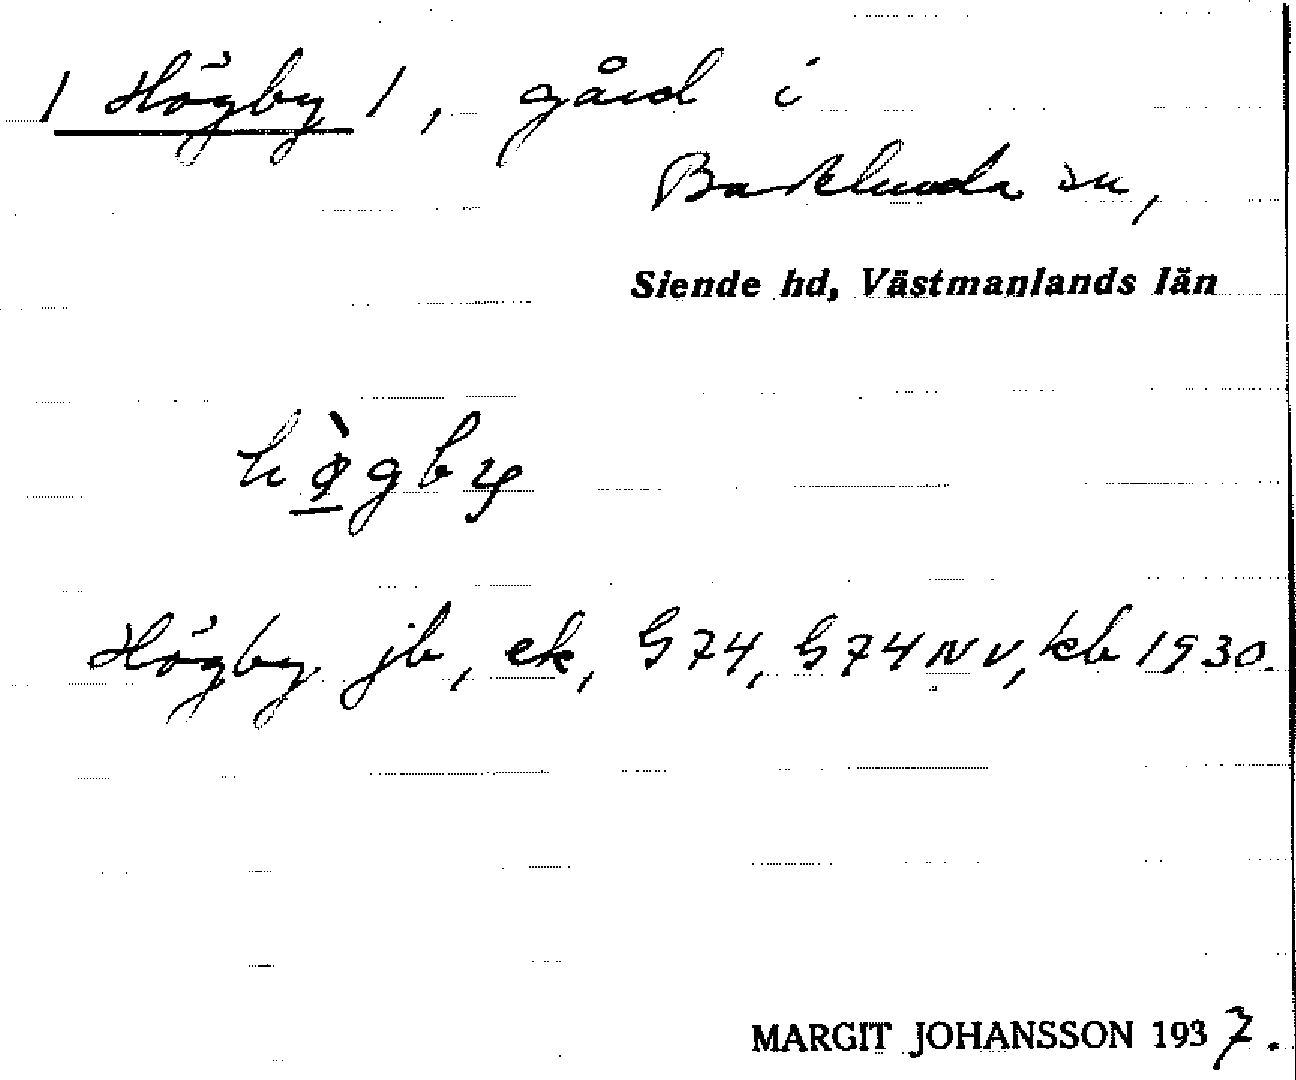 / Högby /, gård i
Barklunda sn,
Siende hd, Västmanlands län
hø̀gby
Högby jb, ek, G 74, G 74 NV, kb 1930.
MARGIT JOHANSSON 1937.